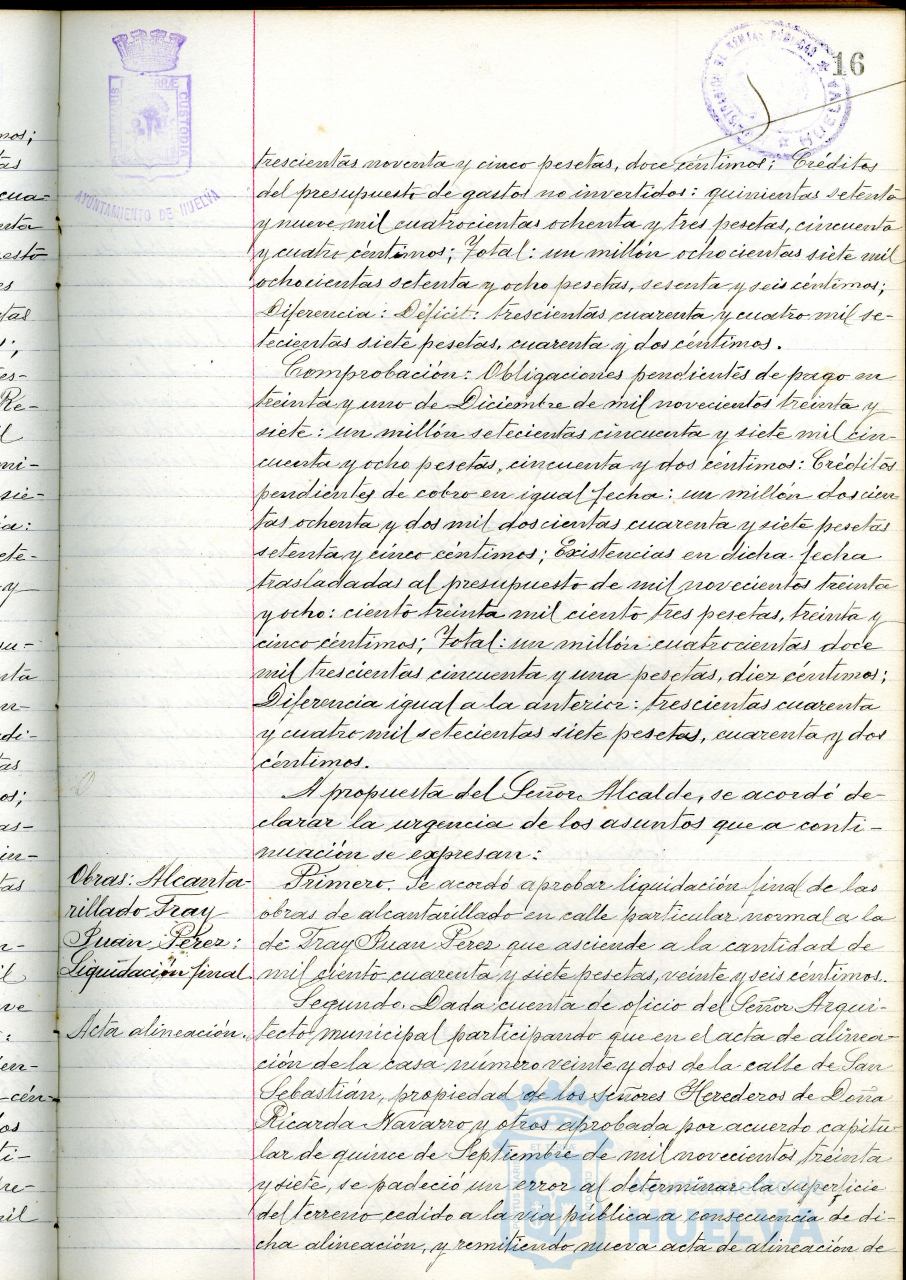 16
AYUNTAMIENTO DE HUELVA
CUSTODIA
HUELVA
trescientas noventa y cinco pesetas, doce céntimos; Créditos
del presupuesto de gastos no invertidos: quinientas setenta
y nueve mil cuatrocientas ochenta y tres pesetas, cincuenta
y cuatro céntimos; Total: un millón ochocientas siete mil
ochocientas setenta y ocho pesetas, sesenta y seis céntimos;
Diferencia: Déficit: trescientas cuarenta y cuatro mil se-
tecientas siete pesetas, cuarenta y dos céntimos.
Comprobación: Obligaciones pendientes de pago en
treinta y uno de Diciembre de mil novecientos treinta y
siete: un millón setecientas cincuenta y siete mil cin-
cuenta y ocho pesetas, cincuenta y dos céntimos: Créditos
pendientes de cobro en igual fecha: un millón doscien
tas ochenta y dos mil doscientas cuarenta y siete pesetas
setenta y cinco céntimos; Existencias en dicha fecha
trasladadas al presupuesto de mil novecientos treinta
y ocho: ciento treinta mil ciento tres pesetas, treinta y
cinco céntimos; Total: un millón cuatrocientas doce
mil trescientas cincuenta y una pesetas, diez céntimos;
Diferencia igual a la anterior: trescientas cuarenta
y cuatro mil setecientas siete pesetas, cuarenta y dos
céntimos.
A propuesta del Señor Alcalde, se acordó de-
clarar la urgencia de los asuntos que a conti-
nuación se expresan:
Obras: Alcanta-
rillado Fray
Juan Pérez:
Liquidación final.
Primero. Se acordó aprobar liquidación final de las
obras de alcantarillado en calle particular normal a la
de Fray Juan Pérez que asciende a la cantidad de
mil ciento cuarenta y siete pesetas, veinte y seis céntimos.
Acta alineación.
Segundo. Dada cuenta de oficio del Señor Arqui-
tecto municipal participando que en el acta de alinea-
ción de la casa número veinte y dos de la calle de San
Sebastián, propiedad de los señores Herederos de Doña
Ricarda Navarro y otros aprobada por acuerdo capitu-
lar de quince de Septiembre de mil novecientos treinta
y siete, se padeció un error al determinar la superficie
del terreno cedido a la vía pública a consecuencia de di-
cha alineación, y remitiendo nueva acta de alineación de
Ayuntamiento de
HUELVA